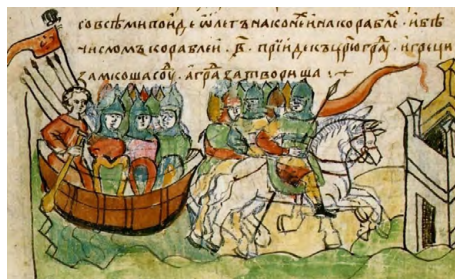 совсѣми поиде ѡлегъ на конеи и на кораблѣ · и бѣ
числомъ кораблеи · ҂в҃ · прїиде къ цр҃юграду · и греци
замкоша соу҃ · а гра҃ затвориша ·